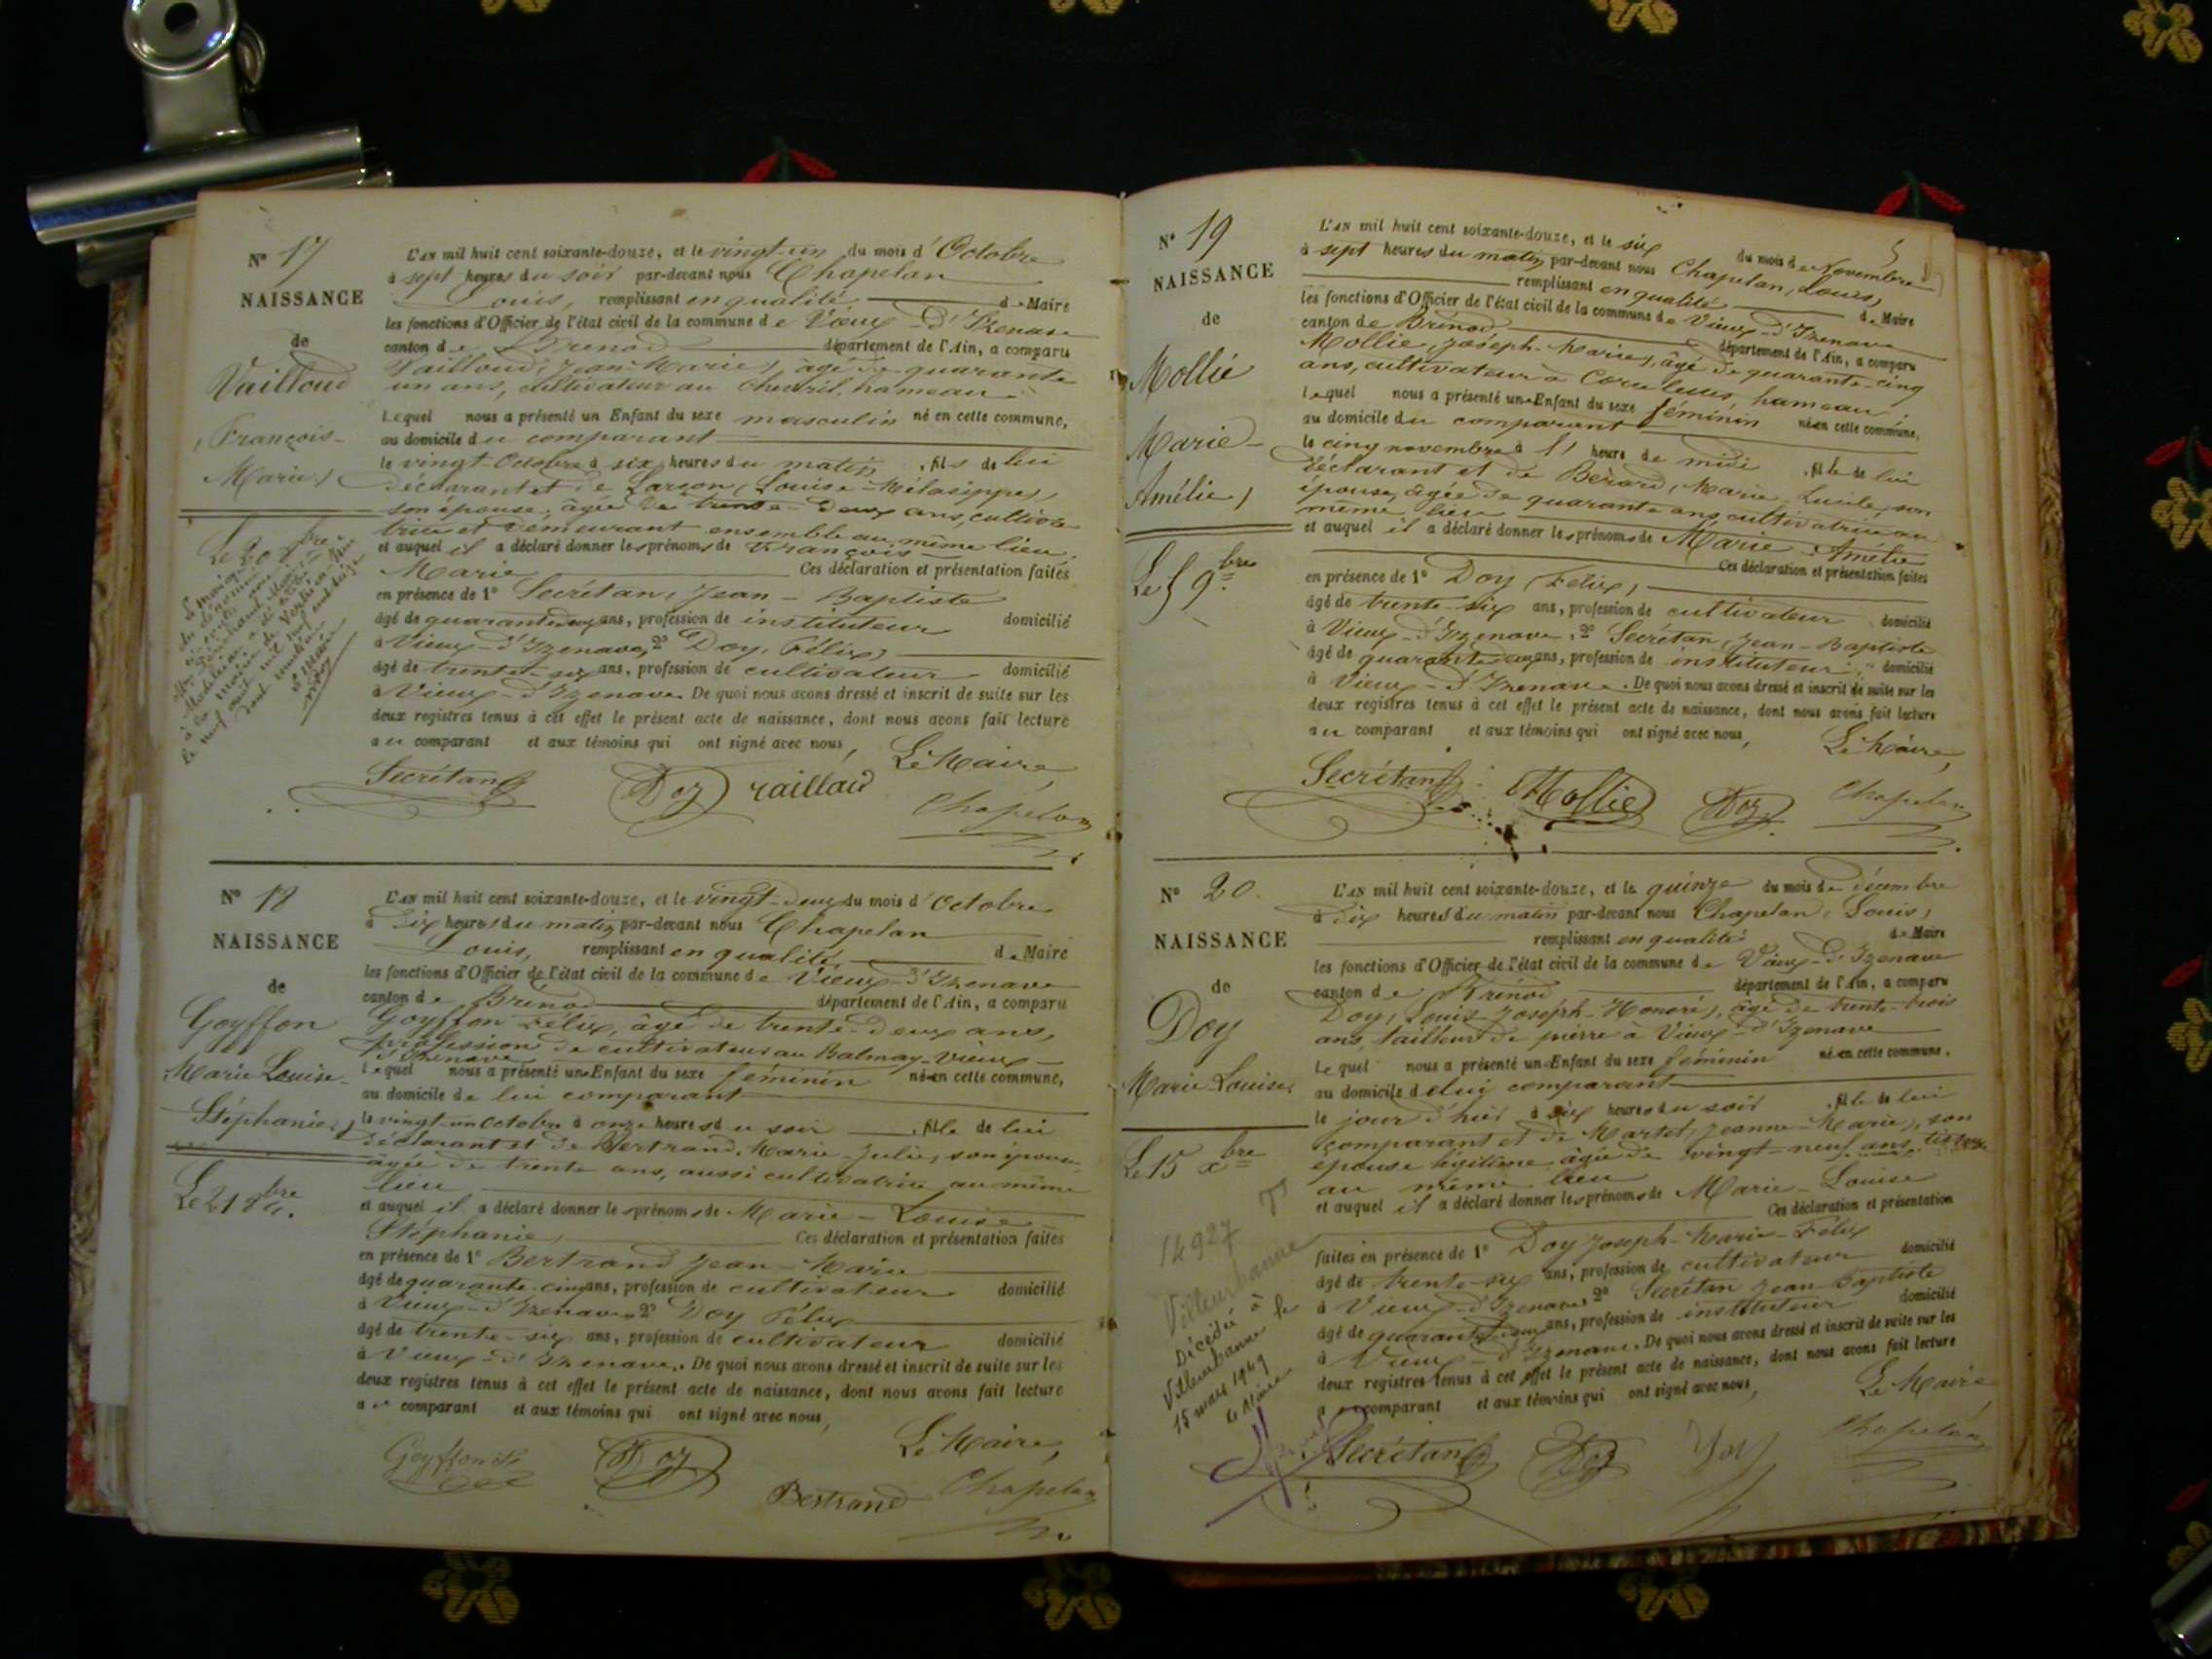 N° 17
NAISSANCE
de
Vailloud
François-
Marie
Le 20 8bre
L'AN mil huit cent soixante-douze, et le vingt-un du mois d'Octobre
à sept heures du soir par-devant nous Chapelan
Louis, remplissant en qualité de Maire
les fonctions d'Officier de l'état civil de la commune de Vieux-d'Izenave
canton de Brenod département de l'Ain, a comparu
Vailloud, Jean-Marie, âgé de quarante
un ans, cultivateur au Chevril, hameau
Lequel nous a présenté un Enfant du sexe masculin né en cette commune,
au domicile du comparant
le vingt Octobre à six heures du matin, fils de lui
déclarant et de Louise
son épouse, âgée de trente-deux ans, cultiva-
trice et demeurant ensemble au même lieu.
et auquel il a déclaré donner les prénoms de François-
Marie Ces déclaration et présentation faites
en présence de 1° Secrétan, Jean-Baptiste
âgé de quarante deux ans, profession de instituteur domicilié
à Vieux-d'Izenave, 2° Doy, Félix,
âgé de trente-six ans, profession de cultivateur domicilié
à Vieux-d'Izenave. De quoi nous avons dressé et inscrit de suite sur les
deux registres tenus à cet effet le présent acte de naissance, dont nous avons fait lecture
au comparant et aux témoins qui ont signé avec nous,
Le Maire,
Secrétan Doy Vailloud
Chapelan
N° 18
NAISSANCE
de
Goyffon
Marie Louise-
Stéphanie,
Le 21 8bre.
L'AN mil huit cent soixante-douze, et le vingt-deux du mois d'Octobre
à dix heures du matin par-devant nous Chapelan
Louis, remplissant en qualité de Maire
les fonctions d'Officier de l'état civil de la commune de Vieux-d'Izenave
canton de Brénod département de l'Ain, a comparu
Goyffon Félix, âgé de trente-deux ans,
profession de cultivateur au Balmay-Vieux-
d'Izenave
Lequel nous a présenté un Enfant du sexe féminin né en cette commune,
au domicile de lui comparant
le vingt-un Octobre à onze heures du soir, fille de lui
déclarant et de Bertrand, Marie-Julie, son épouse
âgée de trente ans, aussi cultivatrice au même
lieu
et auquel il a déclaré donner les prénoms de Marie-Louise
Stéphanie, Ces déclaration et présentation faites
en présence de 1° Bertrand Jean-Marie
âgé de quarante-cinq ans, profession de cultivateur domicilié
à Vieux-d'Izenave 2° Doy Félix
âgé de trente-six ans, profession de cultivateur domicilié
à Vieux-d'Izenave. De quoi nous avons dressé et inscrit de suite sur les
deux registres tenus à cet effet le présent acte de naissance, dont nous avons fait lecture
au comparant et aux témoins qui ont signé avec nous,
Le Maire,
Goyffon Doy
Bertrand Chapelan
N° 19
NAISSANCE
de
Mollie
Marie-
Amélie,
Le 5 9bre
5
L'AN mil huit cent soixante-douze, et le six du mois de Novembre
à sept heures du matin par-devant nous Chapelan, Louis,
remplissant en qualité de Maire
les fonctions d'Officier de l'état civil de la commune de Vieux-d'Izenave
canton de Brénod département de l'Ain, a comparu
Mollie, Joseph-Marie, âgé de quarante-cinq
ans, cultivateur à hameau.
Lequel nous a présenté un Enfant du sexe féminin né en cette commune,
au domicile du comparant
le cinq novembre à heure de midi, fille de lui
déclarant et de Berard, Marie-Lucile, son
épouse, âgée de quarante ans, cultivatrice au
même lieu
et auquel il a déclaré donner les prénoms de Marie-Amélie
Ces déclaration et présentation faites
en présence de 1° Doy, Félix,
âgé de trente-six ans, profession de cultivateur domicilié
à Vieux-d'Izenave, 2° Secrétan, Jean-Baptiste
âgé de quarante deux ans, profession de instituteur domicilié
à Vieux-d'Izenave. De quoi nous avons dressé et inscrit de suite sur les
deux registres tenus à cet effet le présent acte de naissance, dont nous avons fait lecture
au comparant et aux témoins qui ont signé avec nous,
Le Maire,
Secrétan Mollie Doy Chapelan
N° 20.
NAISSANCE
de
Doy
Marie Louise,
Le 15 xbre
14927
Villeurbanne
Décédée à
Villeurbanne le
15 mars 1949
Le Maire
L'AN mil huit cent soixante-douze, et le quinze du mois de décembre
à dix heures du matin par-devant nous Chapelan, Louis,
remplissant en qualité de Maire
les fonctions d'Officier de l'état civil de la commune de Vieux-d'Izenave
canton de Brénod département de l'Ain, a comparu
Doy, Louis-Joseph-Honoré, âgé de trente-trois
ans tailleur de pierre à Vieux-d'Izenave
Lequel nous a présenté un Enfant du sexe féminin né en cette commune,
au domicile de lui comparant
le jour d'hier à six heures du soir, fille de lui
comparant et de Martet, Jeanne-Marie, son
épouse légitime âgée de vingt-neuf ans,
au même lieu
et auquel il a déclaré donner les prénoms de Marie-Louise
Ces déclaration et présentation
faites en présence de 1° Doy Joseph-Marie-Félix
âgé de trente-six ans, profession de cultivateur domicilié
à Vieux-d'Izenave 2° Secrétan Jean-Baptiste
âgé de quarante deux ans, profession de instituteur domicilié
à Vieux-d'Izenave. De quoi nous avons dressé et inscrit de suite sur les
deux registres tenus à cet effet le présent acte de naissance, dont nous avons fait lecture
au comparant et aux témoins qui ont signé avec nous,
Le Maire,
Secrétan Doy Doy Chapelan